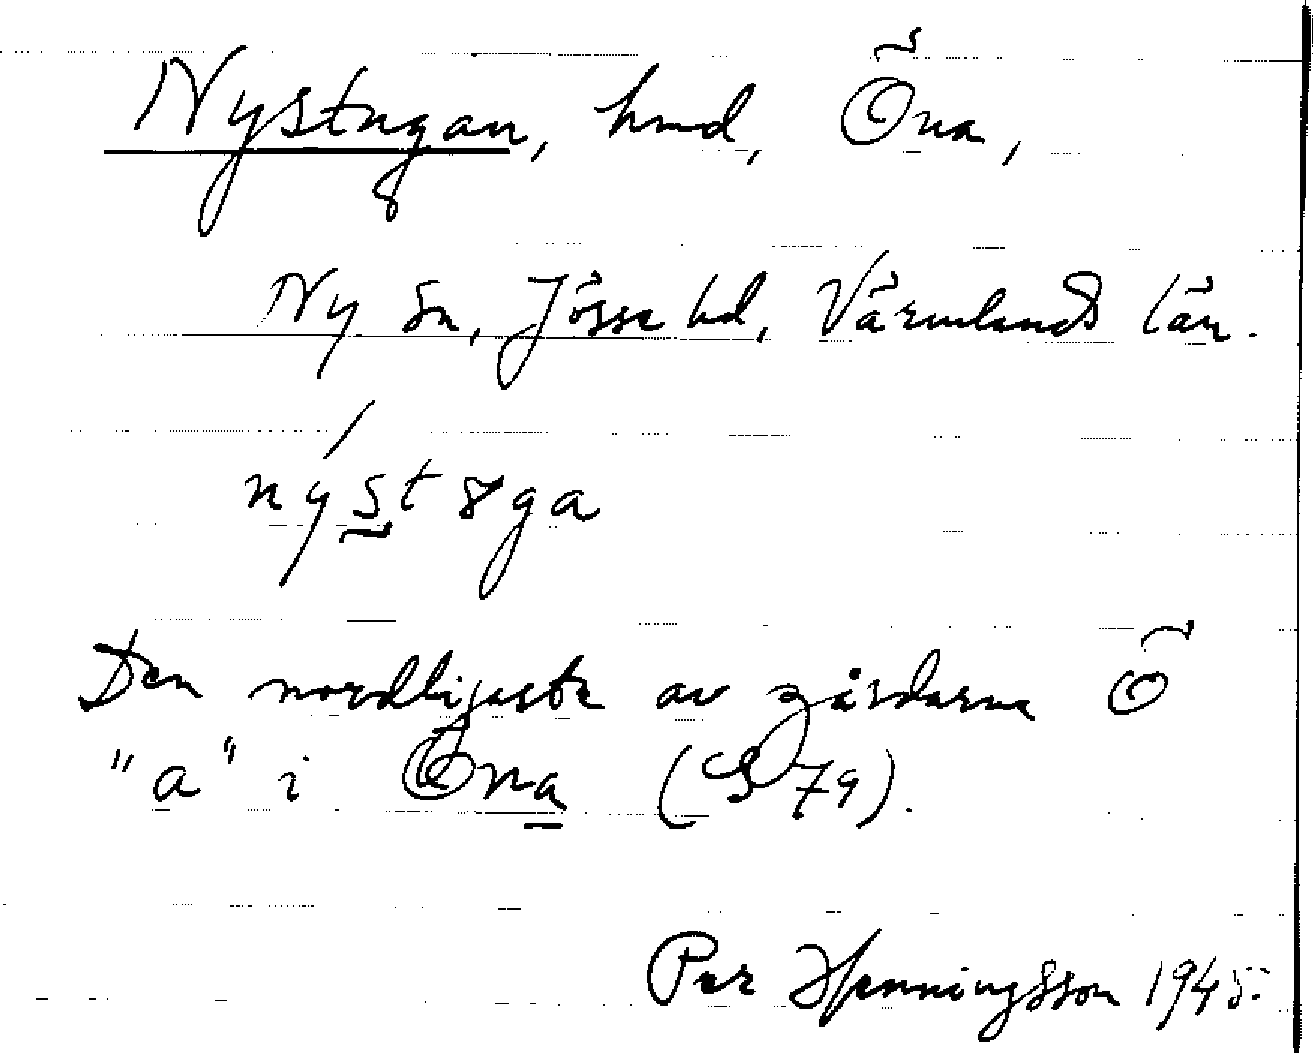 Nystugan, hmd, Öna,
Ny sn, Jösse hd, Värmlands län.
nýstɞga
Den nordligaste av gårdarna Ö
"a" i Öna (79).
Per Henningsson 1945.